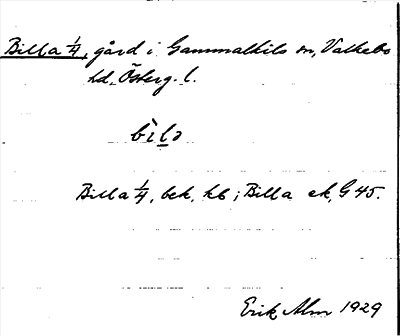 Billa 1/4, gård i Gammalkils sn, Valkebo
hd, Österg. l.
bìlo
Billa 1/4, bek. hb i Billa ek, G 45.
Erik Alm 1929